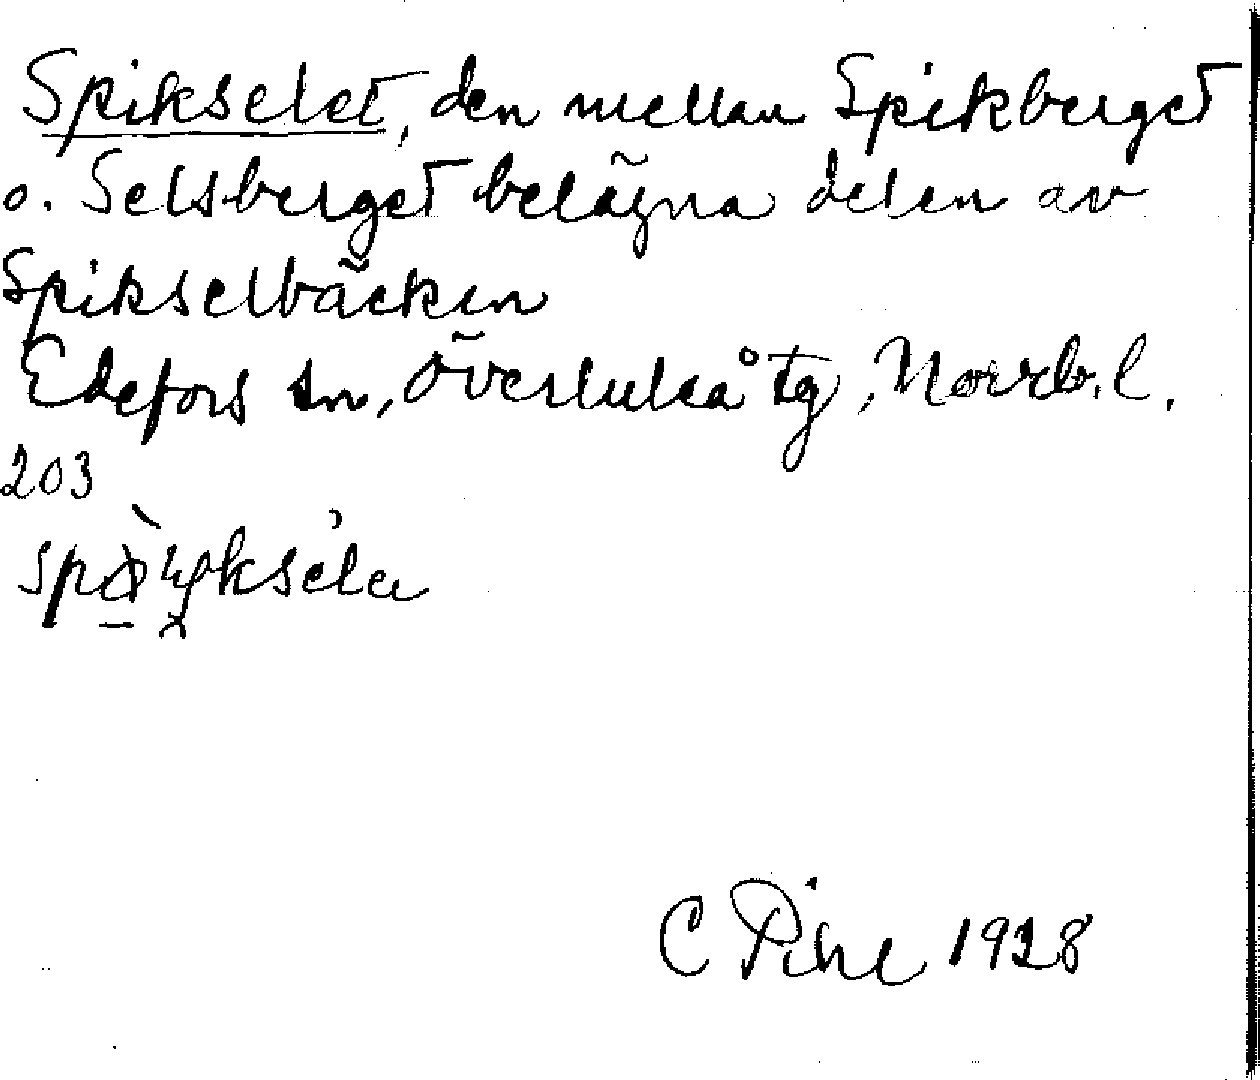 Spikselet, den mellan Spikberget
o. Selsberget belägna delen av
Spikselbäcken
Edefors sn, Överluleå tg, Norrb. l.
203
C Pihl 1928